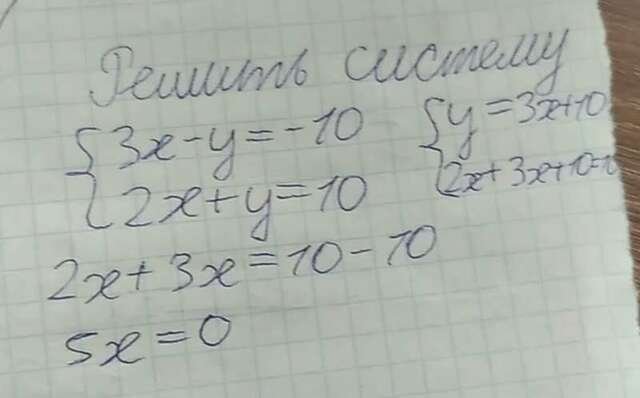 Решить систему
3x-y=-10
2x+y=10
y=3x+10
2x+3x+10=10
2x+3x=10-10
5x=0